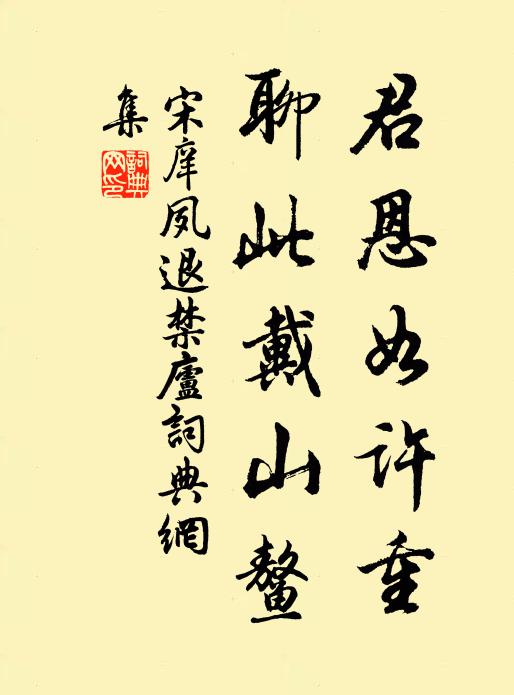 君恩如許重
聊此戴山鼇
宋庠夙退禁廬詞典網
集
詞典網印